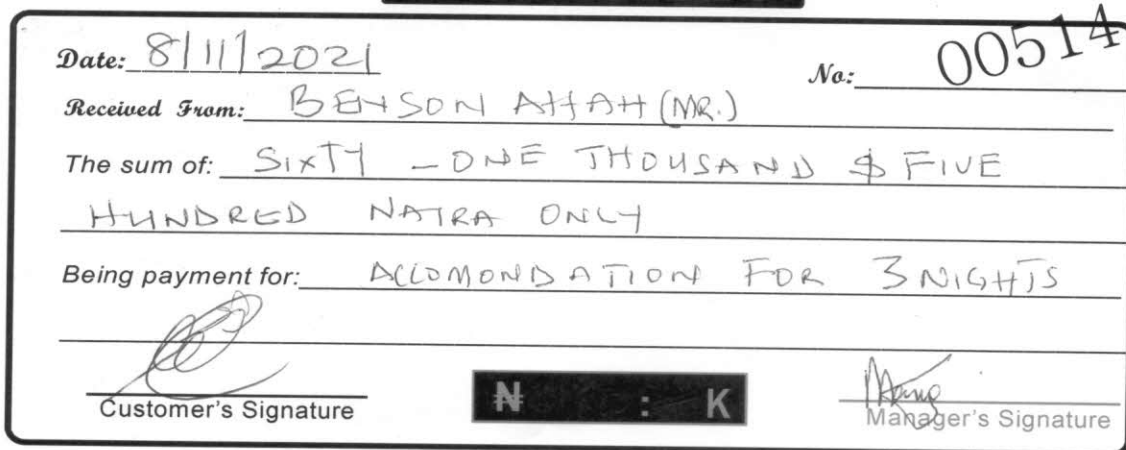 Date: 8/11/2021 No: 00514
Received From: BENSON AHAH (MR.)
The sum of: SIXTY - ONE THOUSAND $ FIVE
HUNDRED NAIRA ONLY
Being payment for: ACCOMONDATION FOR 3 NIGHTS
Customer's Signature ₦ : K Manager's Signature